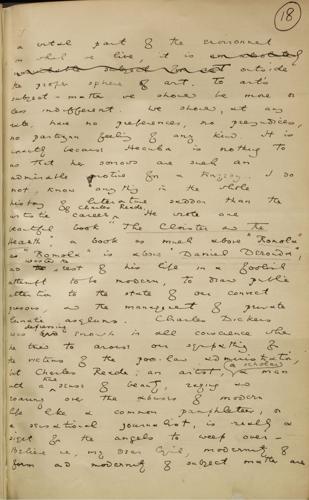 18
a vital part of the environment
in which we live, it is
outside
the proper sphere of art. To art's
subject-matter we should be more or
less indifferent. We should, at any
rate, have no preferences, no prejudices,
no partisan feeling of any kind. It is
exactly because Hecuba is nothing to
us that her sorrows are such an
admirable motive for a tragedy. I do
not know anything in the whole
history of literature sadder than the
artistic career of Charles Reade. He wrote one
beautiful book "The Cloister and the
Hearth" a book as much above "Romola"
as "Romola" is above "Daniel Deronda",
and wasted the rest of his life in a foolish
attempt to be modern, to draw public
attention to the state of our convict
prisons, and the management of private
lunatic asylums. Charles Dickens
was depressing enough in all conscience when
he tried to arouse our sympathy for
the victims of the poor-law administration,
but Charles Reade, an artist, a scholar, a man
with a true sense of beauty, raging and
roaring over the abuses of modern
life like a common pamphleteer, or
a sensational journalist, is really a
sight for the angels to weep over-
Believe me, my dear Cyril, modernity of
form and modernity of subject matter are